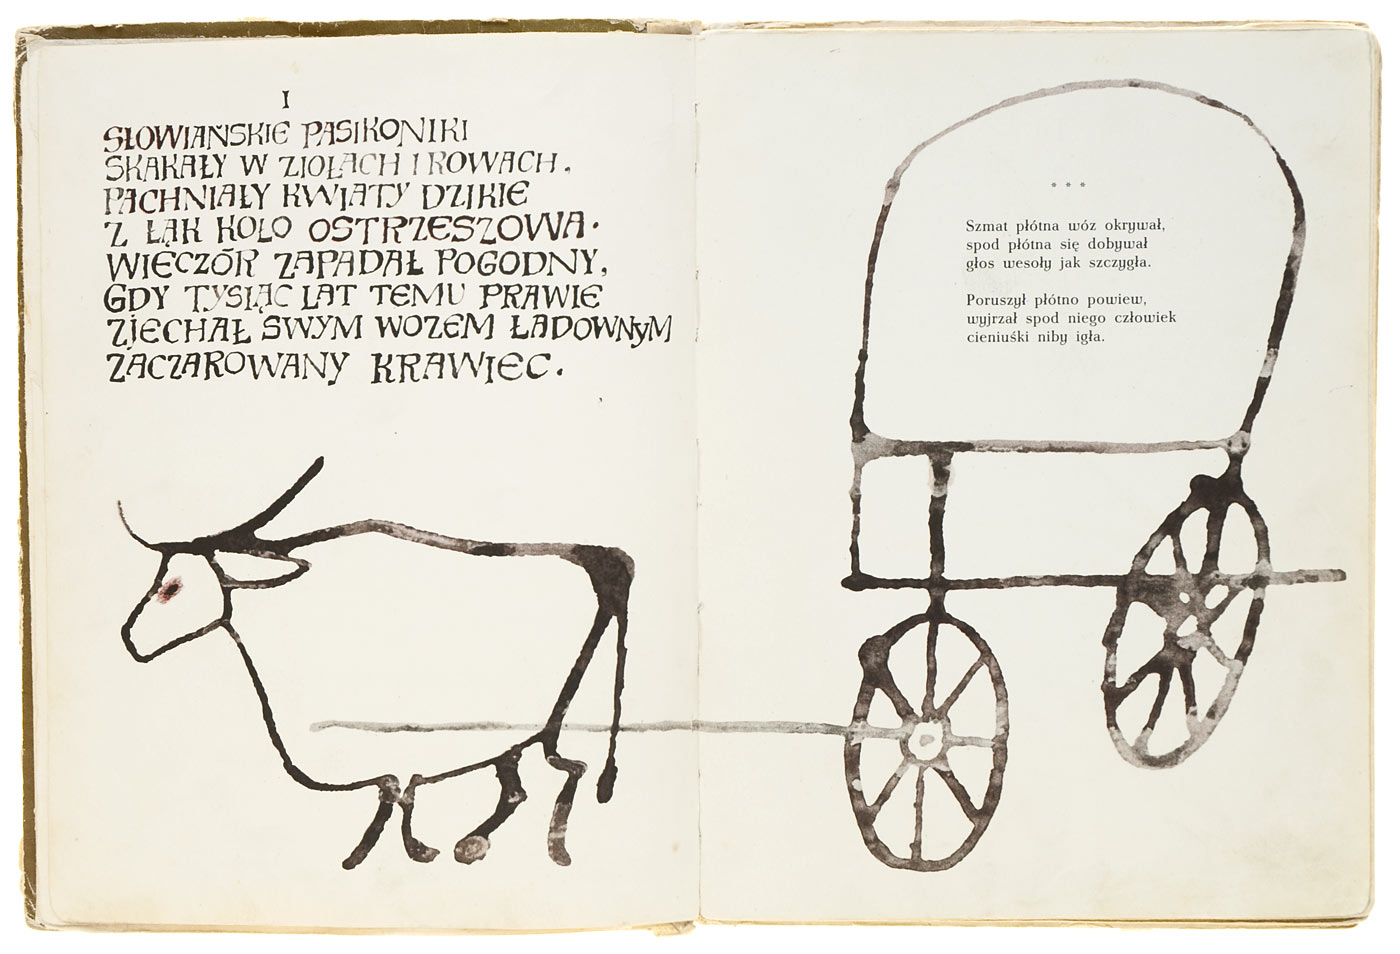 I
SŁOWIAŃSKIE PASIKONIKI
SKAKAŁY W ZIOŁACH I ROWACH.
PACHNIAŁY KWIATY DZIKIE
Z ŁĄK KOŁO OSTRZESZOWA.
WIECZÓR ZAPADAŁ POGODNY,
GDY TYSIĄC LAT TEMU PRAWIE
ZJECHAŁ SWYM WOZEM ŁADOWNyM
ZACZAROWANY KRAWIEC.
* * *
Szmat płótna wóz okrywał,
spod płótna się dobywał
głos wesoły jak szczygła.
Poruszył płótno powiew,
wyjrzał spod niego człowiek
cieniuśki niby igła.